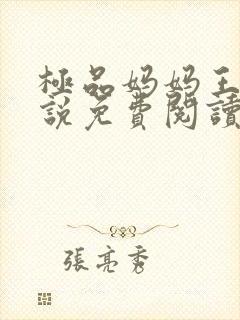 極品妈妈王
說免費閱讀
張亮秀